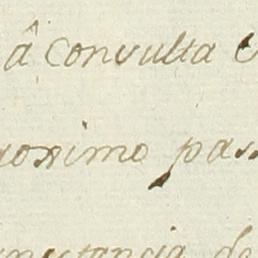 â Consulta
roximo pas
unstancia de